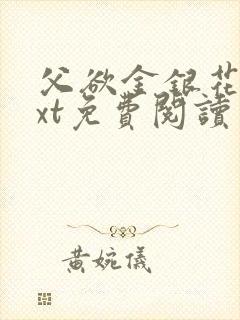 父欲金銀花
xt免費閱讀
黃婉儀